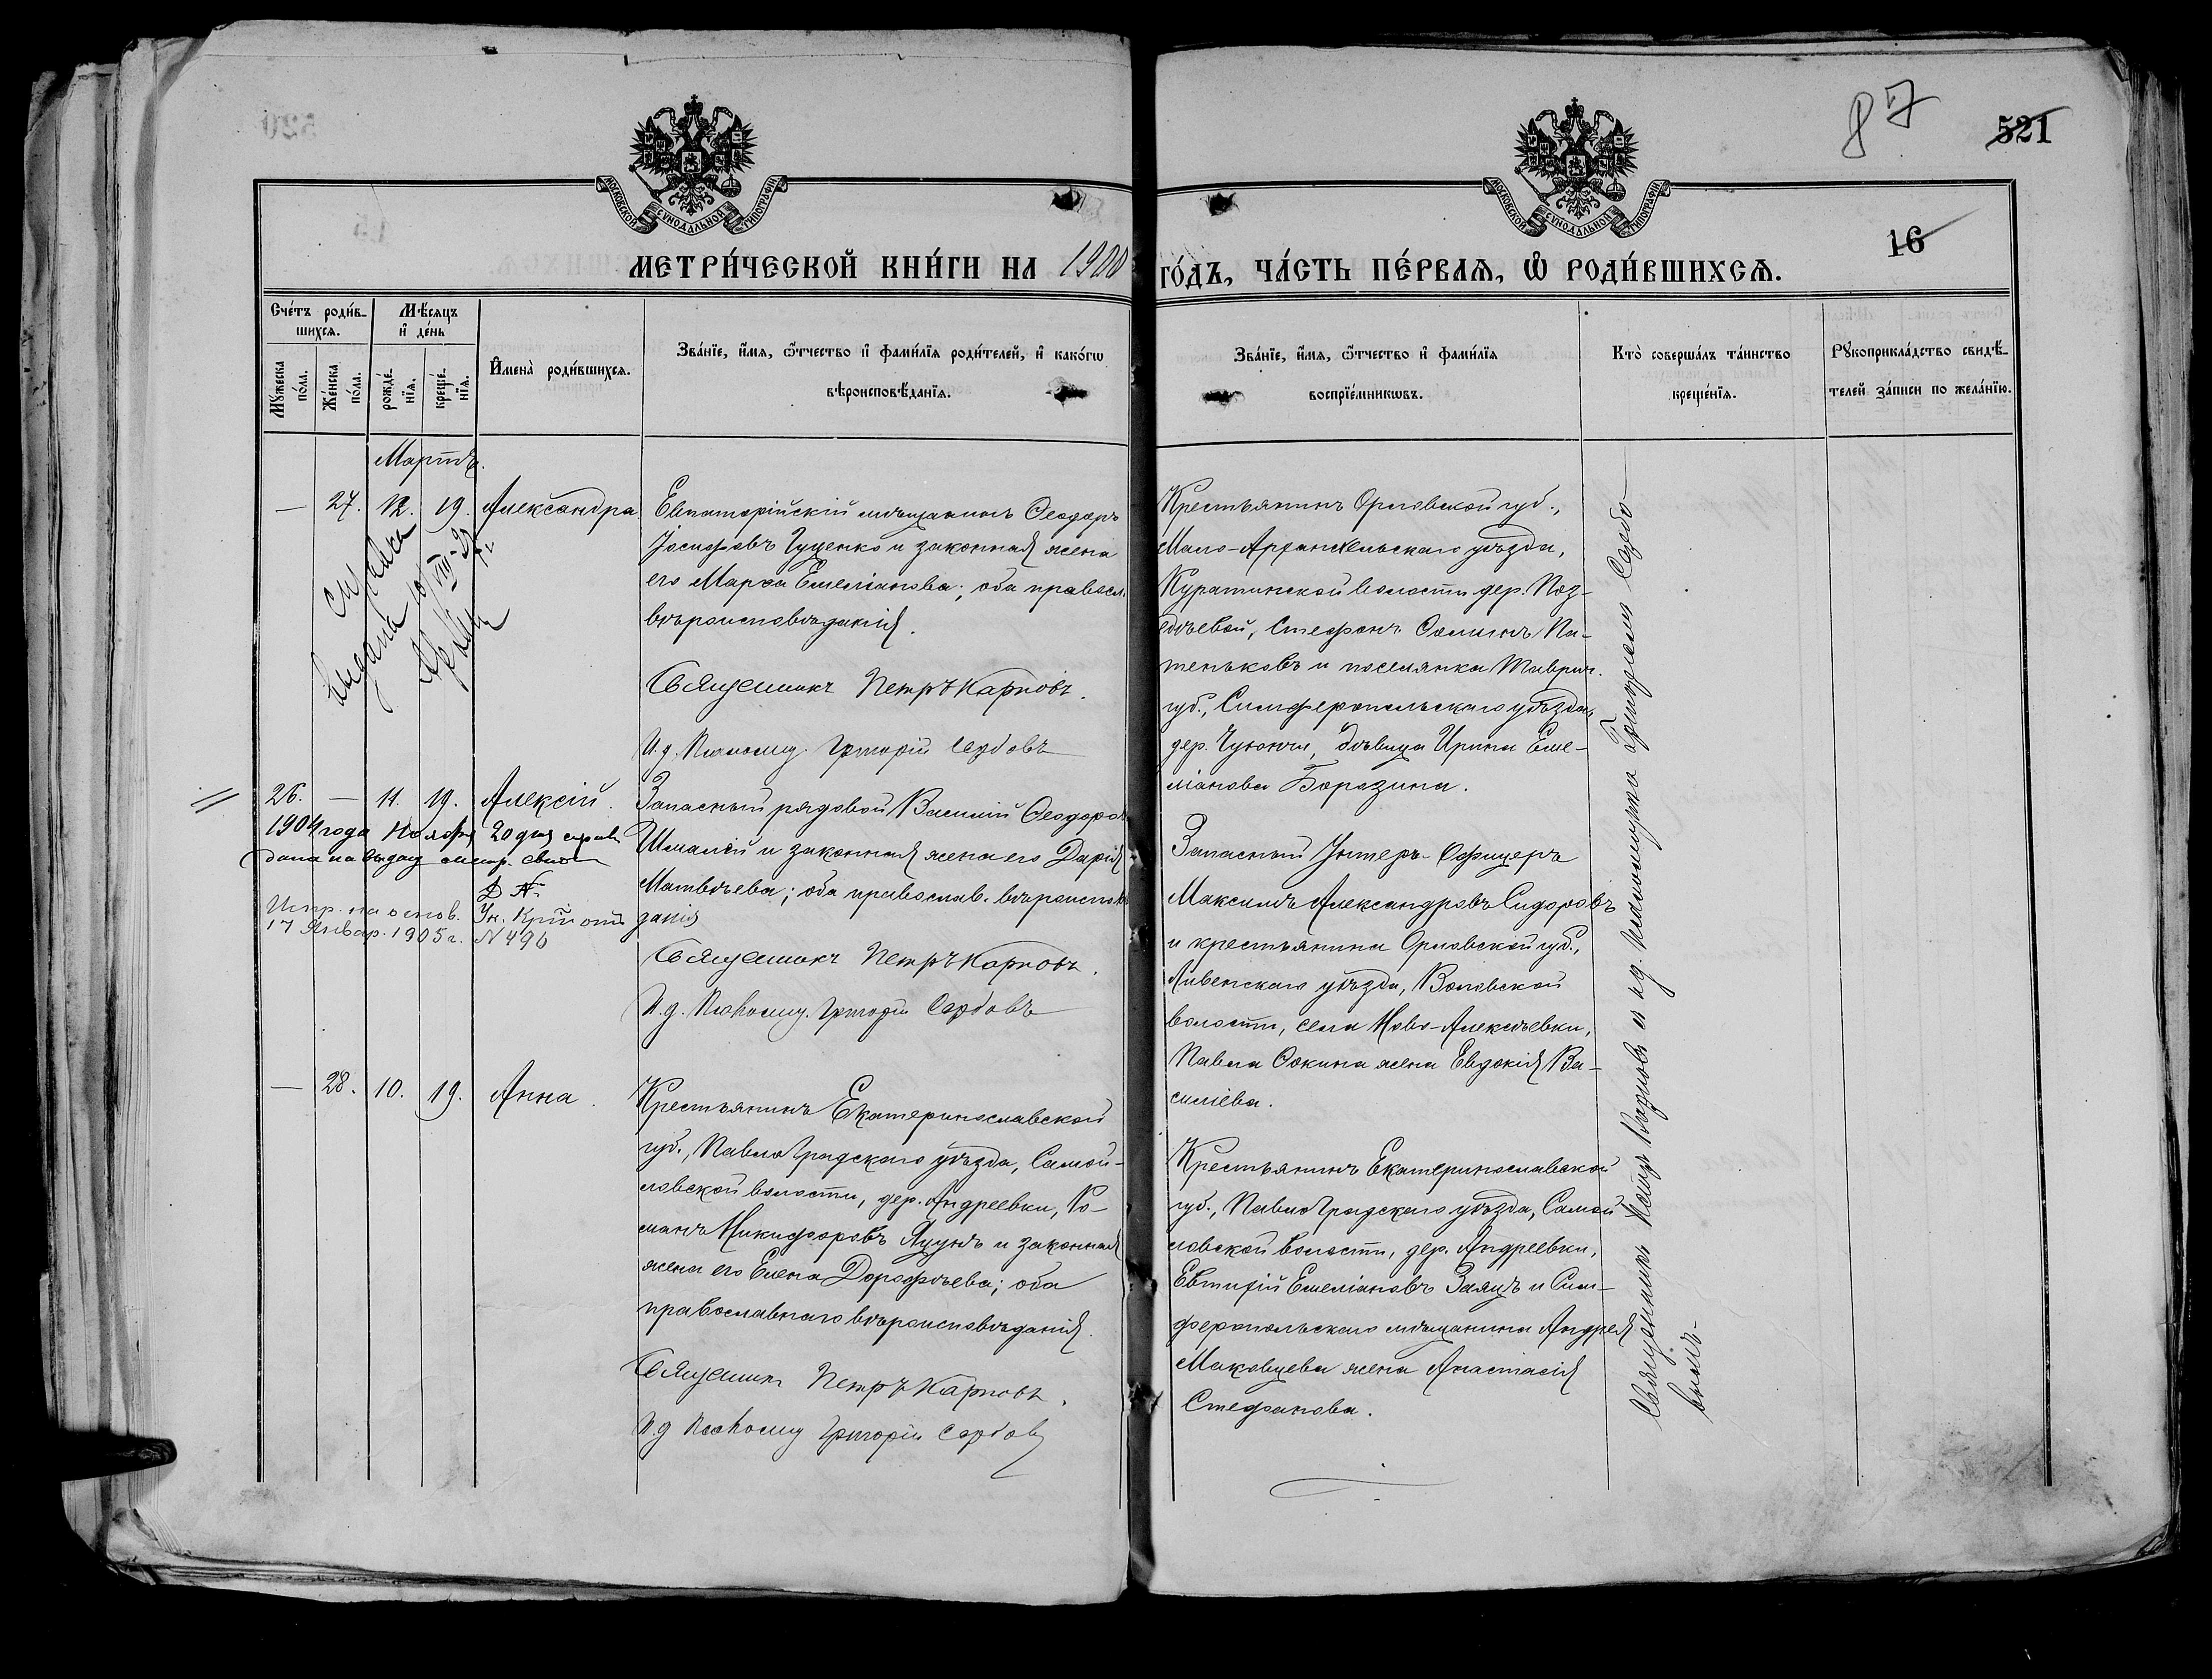 87
521
16
МОСКОВСКОЙ СѴНОДАЛЬНОЙ ТИПОГРАФІИ
МОСКОВСКОЙ СѴНОДАЛЬНОЙ ТИПОГРАФІИ
МЕТРИ́ЧЕСКОЙ КНИ́ГИ НА 1900 ГО́ДЪ, ЧА́СТЬ ПЕ́РВАЯ, Ѡ РОДИ́ВШИХСЯ.
Сче́тъ роди́в-
шихся.
Мѣ́сяцъ
и де́нь
Мꙋ́жеска
по́ла.
Же́нска
по́ла.
рожде́-
нїя.
креще́-
нїя.
И҆мена̀ роди́вшихся.
Зва́нїе, и҆́мя, ѻ҆́тчество и҆ фами́лїя роди́телей, и҆ како́гѡ
вѣроисповѣ́данїя.
Зва́нїе, и҆́мя, ѻ҆́тчество и҆ фами́лїя
воспрїе́мникѡвъ.
Кто̀ соверша́лъ та́инство
креще́нїя.
Рꙋкоприкла́дство свидѣ́-
телей за́писи по жела́нїю.
Мартъ.
— 27. 12. 19. Александра.
Евпаторійскій мѣщанинъ Ѳеодоръ
Іосифовъ Гуценко и законная жена
его Марѳа Емеліанова; оба правосл.
вѣроисповѣданія.
Священникъ Петръ Карповъ.
И. д. Псаломщ. Григорій Сербовъ
Крестьянинъ Орловской губ.,
Мало-Архангельскаго уѣзда,
Куратинской волости дер. Поз-
дѣевой, Стефанъ Ѳоминъ Па-
теньковъ и поселянка Таврич.
губ., Симферопольскаго уѣзда,
дер. Чуюнчи, дѣвица Ирина Еме-
ліанова Борозина.
выдана
26. — 11. 19. Алексій.
1904 года Ноября 20 дня справ
дана на выдачу метр. свид
Испр. на основ. Ук. от
17 Январ. 1905 г. N 496
Запасный рядовой Василій Ѳеодоров
Шмалій и законная жена его Дарія
Матвѣева; оба православ. вѣроисповѣ
данія
Священникъ Петръ Карповъ.
И. д. Псаломщ. Григорій Сербовъ
Запасный Унтеръ-Офицеръ
Максимъ Александровъ Сидоровъ
и крестьянина Орловской губ.,
Ливенскаго уѣзда, Воловской
волости, села Ново-Алексѣевки,
Павла Ѳокина жена Евдокія Ва-
силіева.
— 28. 10. 19. Анна.
Крестьянинъ Екатеринославской
губ., Павлоградскаго уѣзда, Самой-
ловской волости, дер. Андреевки, Ро-
манъ Никифоровъ Яцунъ и законная
жена его Елена Дороѳѣева; оба
православнаго вѣроисповѣданія.
Священникъ Петръ Карповъ.
И. д Псаломщ Григорій Сербовъ
Крестьянинъ Екатеринославской
губ., Павлоградскаго уѣзда, Самой
ловской волости, дер. Андреевки,
Евтихій Емеліановъ Заяцъ и Сим-
феропольскаго мѣщанина Андрея
Маковцева жена Анастасія
Стефанова.
Священникъ Петръ Карповъ съ и. д. Псаломщика Григоріемъ Сербо-
вымъ-